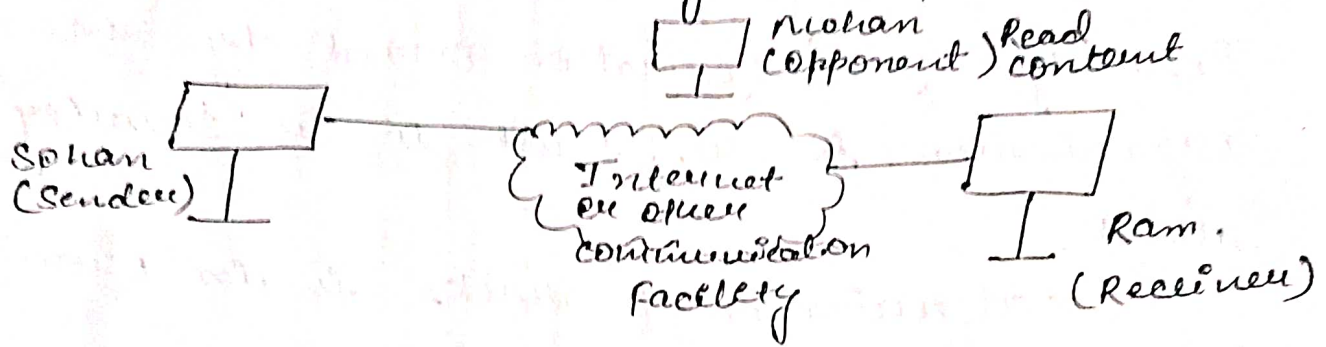 Mohan
(opponent) Read
content
Sohan
(Sender)
Internet
or other
communication
facility
Ram.
(Receiver)